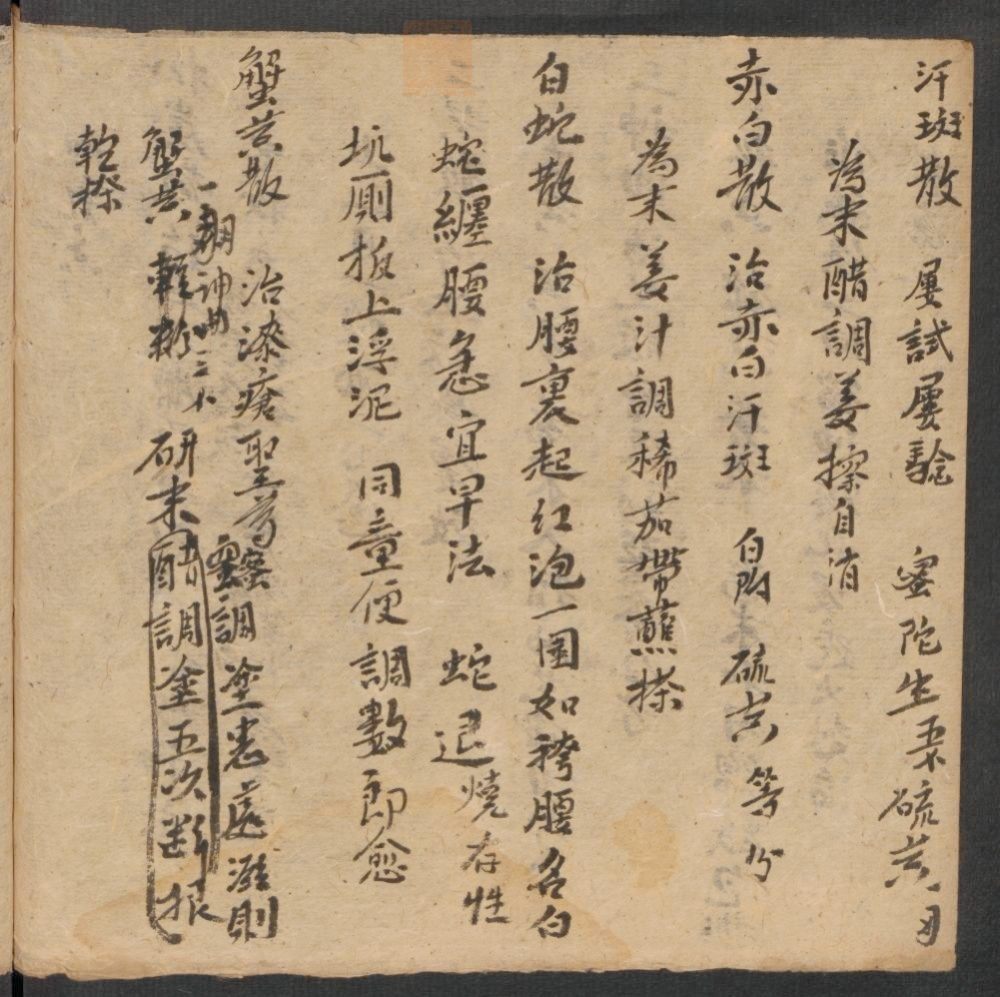 汗斑散　屢試屢驗　蜜陀生　硫黄
為末醋調姜擦自消
赤白散　治赤白汗斑　白附　硫黄　等分
為末姜汁調稀茄帶蘸搽
白蛇散　治腰裏起紅泡一圍如袴腰名白
蛇纏腰急宜早法　蛇退燒存性
坑厠板上浮泥　同童便調敷即愈
蟹黄散　治漆瘡聖葯　蜜調塗患處濕則
蟹黄　研末醋調塗五次斷根
乾搽